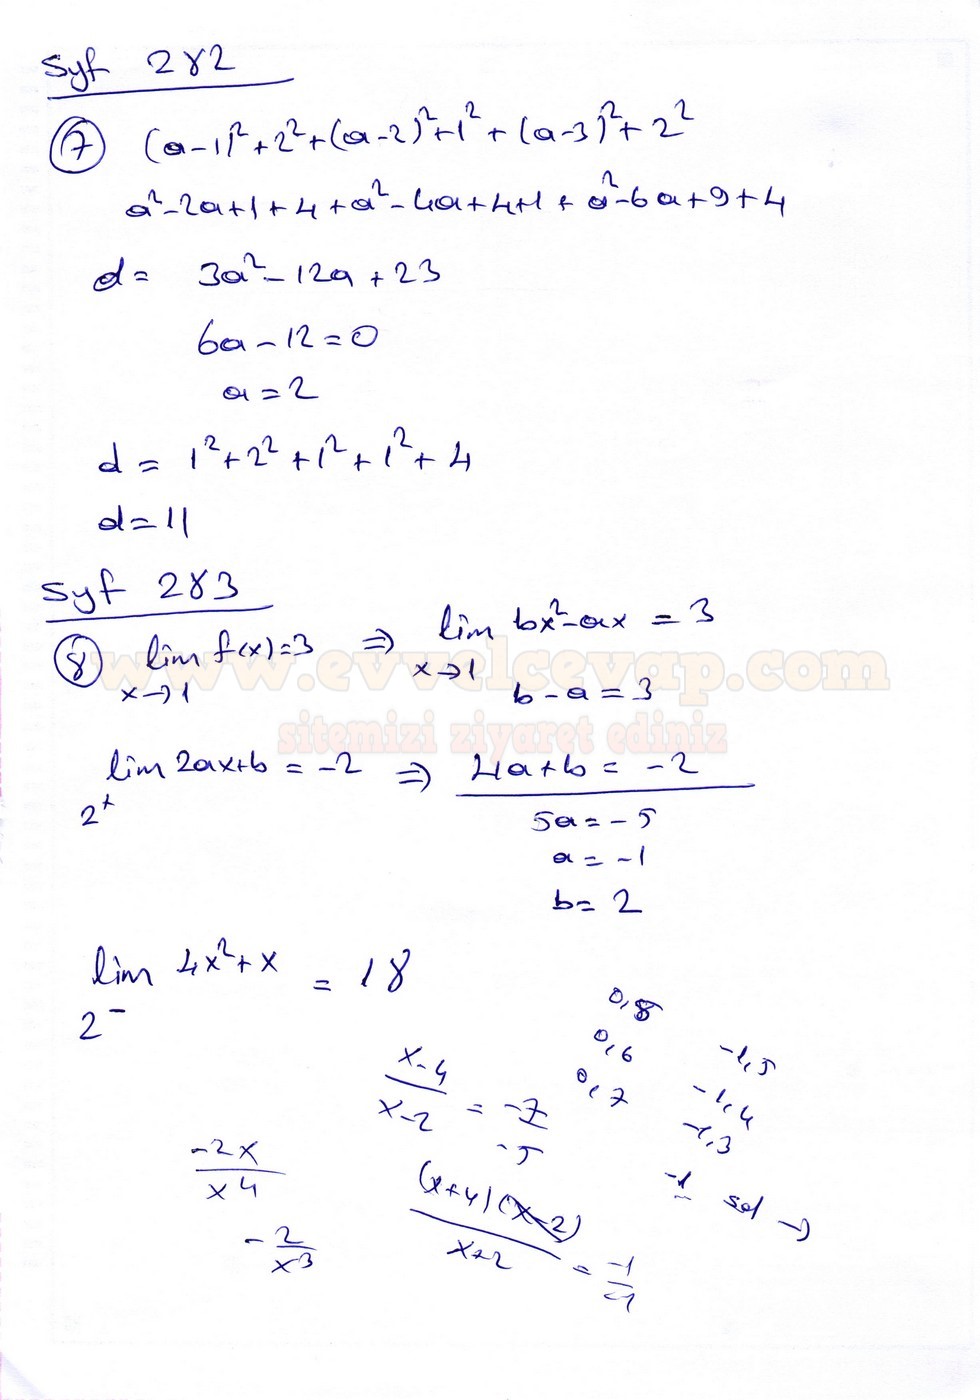 Syf 282
7 (a-1)²+2²+(a-2)²+1²+(a-3)²+2²
a²-2a+1+4+a²-4a+4+1+a²-6a+9+4
d= 3a²-12a+23
6a-12=0
a=2
d= 1²+2²+1²+1²+4
d=11
Syf 283
8 lim f(x)=3 ⇒ lim bx²-ax = 3
x→1 x→1
b-a=3
www.evvelcevap.com
sitemizi ziyaret ediniz
lim 2ax+b = -2 ⇒ 4a+b = -2
2⁺
5a=-5
a=-1
b=2
lim 4x²+x = 18
2⁻
0,8
0,6
0,7
-1,5
-1,4
-1,3
-1 sol →
x-4/x-2 = -7/-5
-2x/x4
-2/x3
(x+4)(x-2)/x+2 = -1/-1